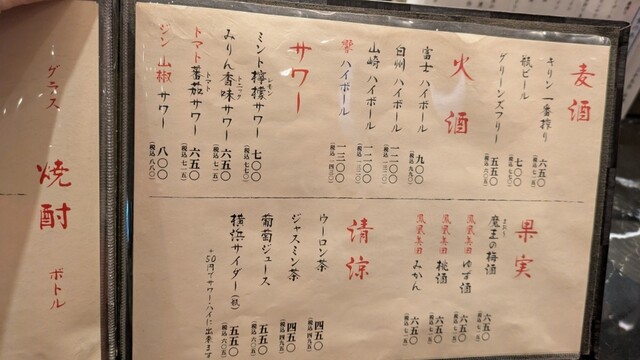 麦酒
キリン一番搾り 六五〇
(税込七一五)
瓶ビール 七〇〇
(税込七七〇)
グリーンズフリー 五五〇
(税込六〇五)
火酒
富士ハイボール 九〇〇
(税込九九〇)
白州ハイボール 一二〇〇
(税込一三二〇)
山崎ハイボール 一二〇〇
(税込一三二〇)
響ハイボール 一三〇〇
(税込一四三〇)
サワー
ミント檸檬サワー 七〇〇
レモン
(税込七七〇)
みりん香味サワー 六五〇
トニック
(税込七一五)
トマト蕃茄サワー 六五〇
トマト
(税込七一五)
ジン山椒サワー 八〇〇
(税込八八〇)
果実
魔王の梅酒 六五〇
まおう
(税込七一五)
鳳凰美田 ゆず酒 六五〇
(税込七一五)
鳳凰美田 桃酒 六五〇
(税込七一五)
鳳凰美田 みかん 六五〇
(税込七一五)
清涼
ウーロン茶 四五〇
(税込四九五)
ジャスミン茶 四五〇
(税込四九五)
葡萄ジュース 五五〇
(税込六〇五)
横浜サイダー(瓶) 五五〇
(税込六〇五)
+50円でサワー・ハイに出来ます
焼酎
グラス
ボトル